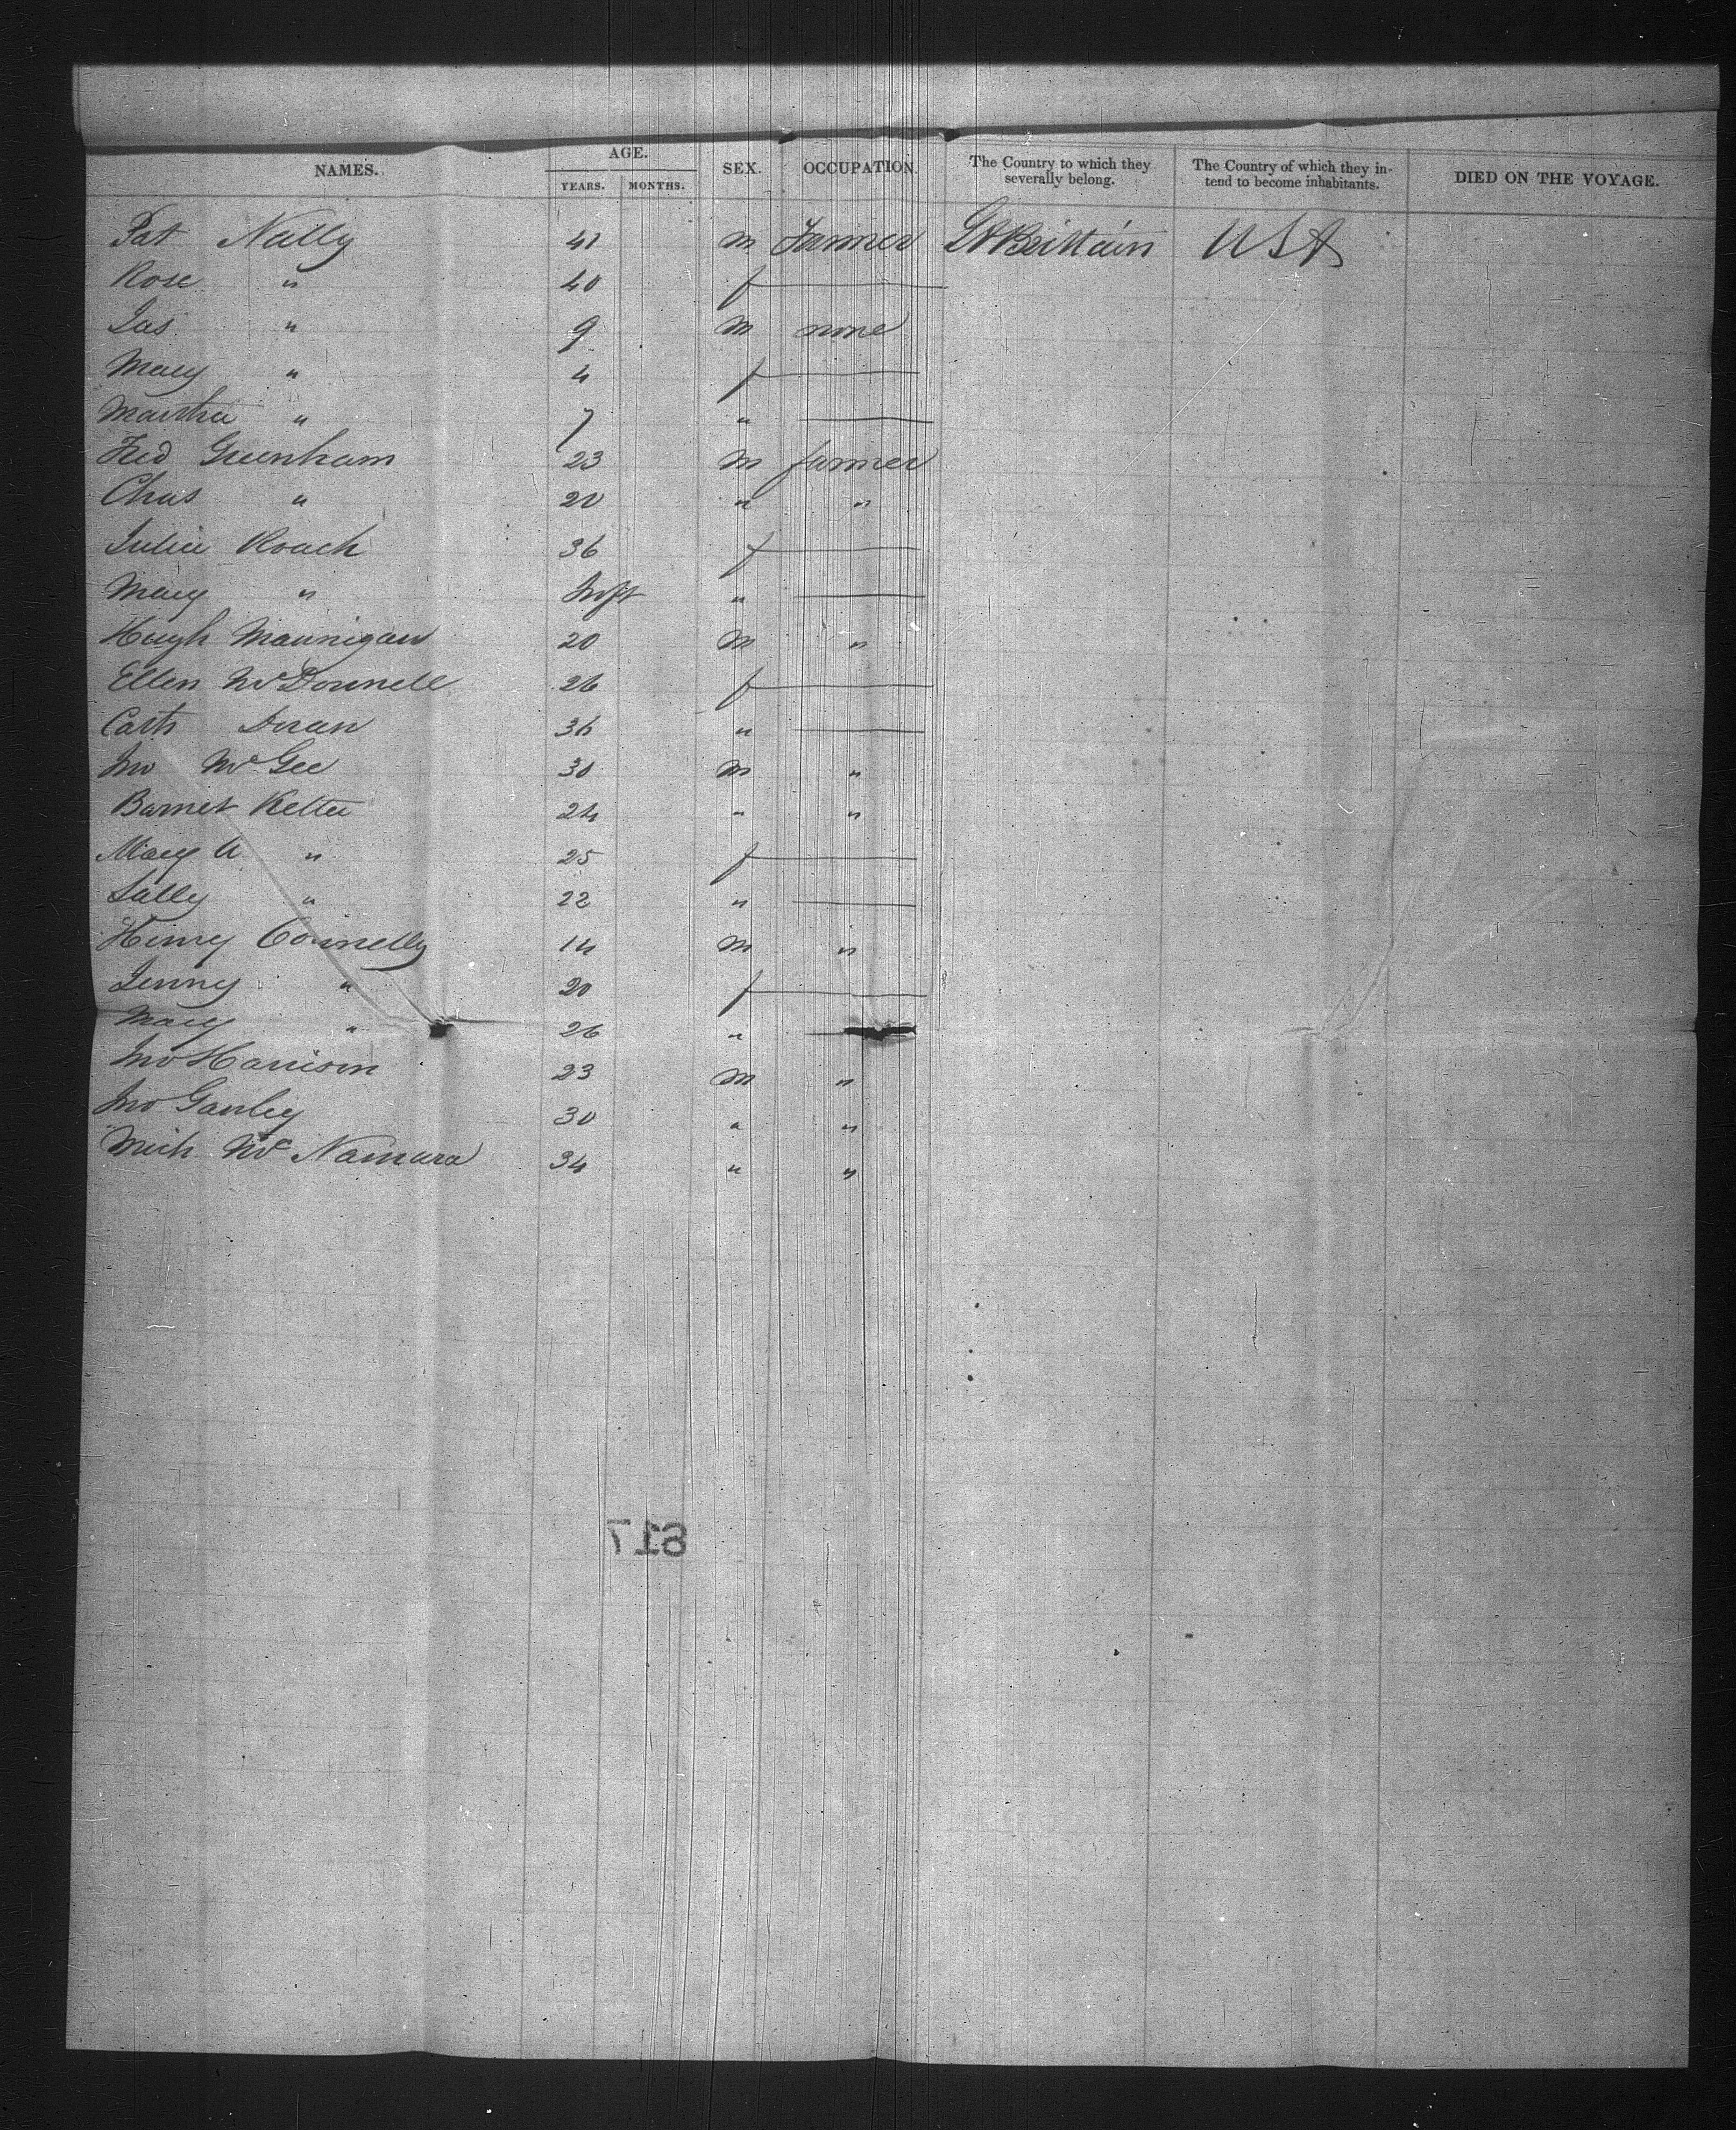 NAMES. AGE. SEX. OCCUPATION. The Country to which they severally belong. The Country of which they in-tend to become inhabitants. DIED ON THE VOYAGE.
YEARS. MONTHS.
Pat Nally 41 m Farmer Gt Brittain USA
Rose " 40 f
Jas " 9 m none
Mary " 4 f
Martha " 7 "
Fred Greenham 23 m farmer
Chas " 20 " "
Julia Roach 36 f
Mary " Inft "
Hugh Mannigan 20 m "
Ellen McDonnell 26 f
Cath Doran 36 "
Jno McGee 30 m "
Barnet 24 " "
Mary A " 25 f
Sally " 22 "
Henry Connelly 14 m "
Jenny " 20 f
Mary " 26 "
Jno Harrison 23 m "
Jno Ganley 30 " "
Mich McNamara 34 " "
617